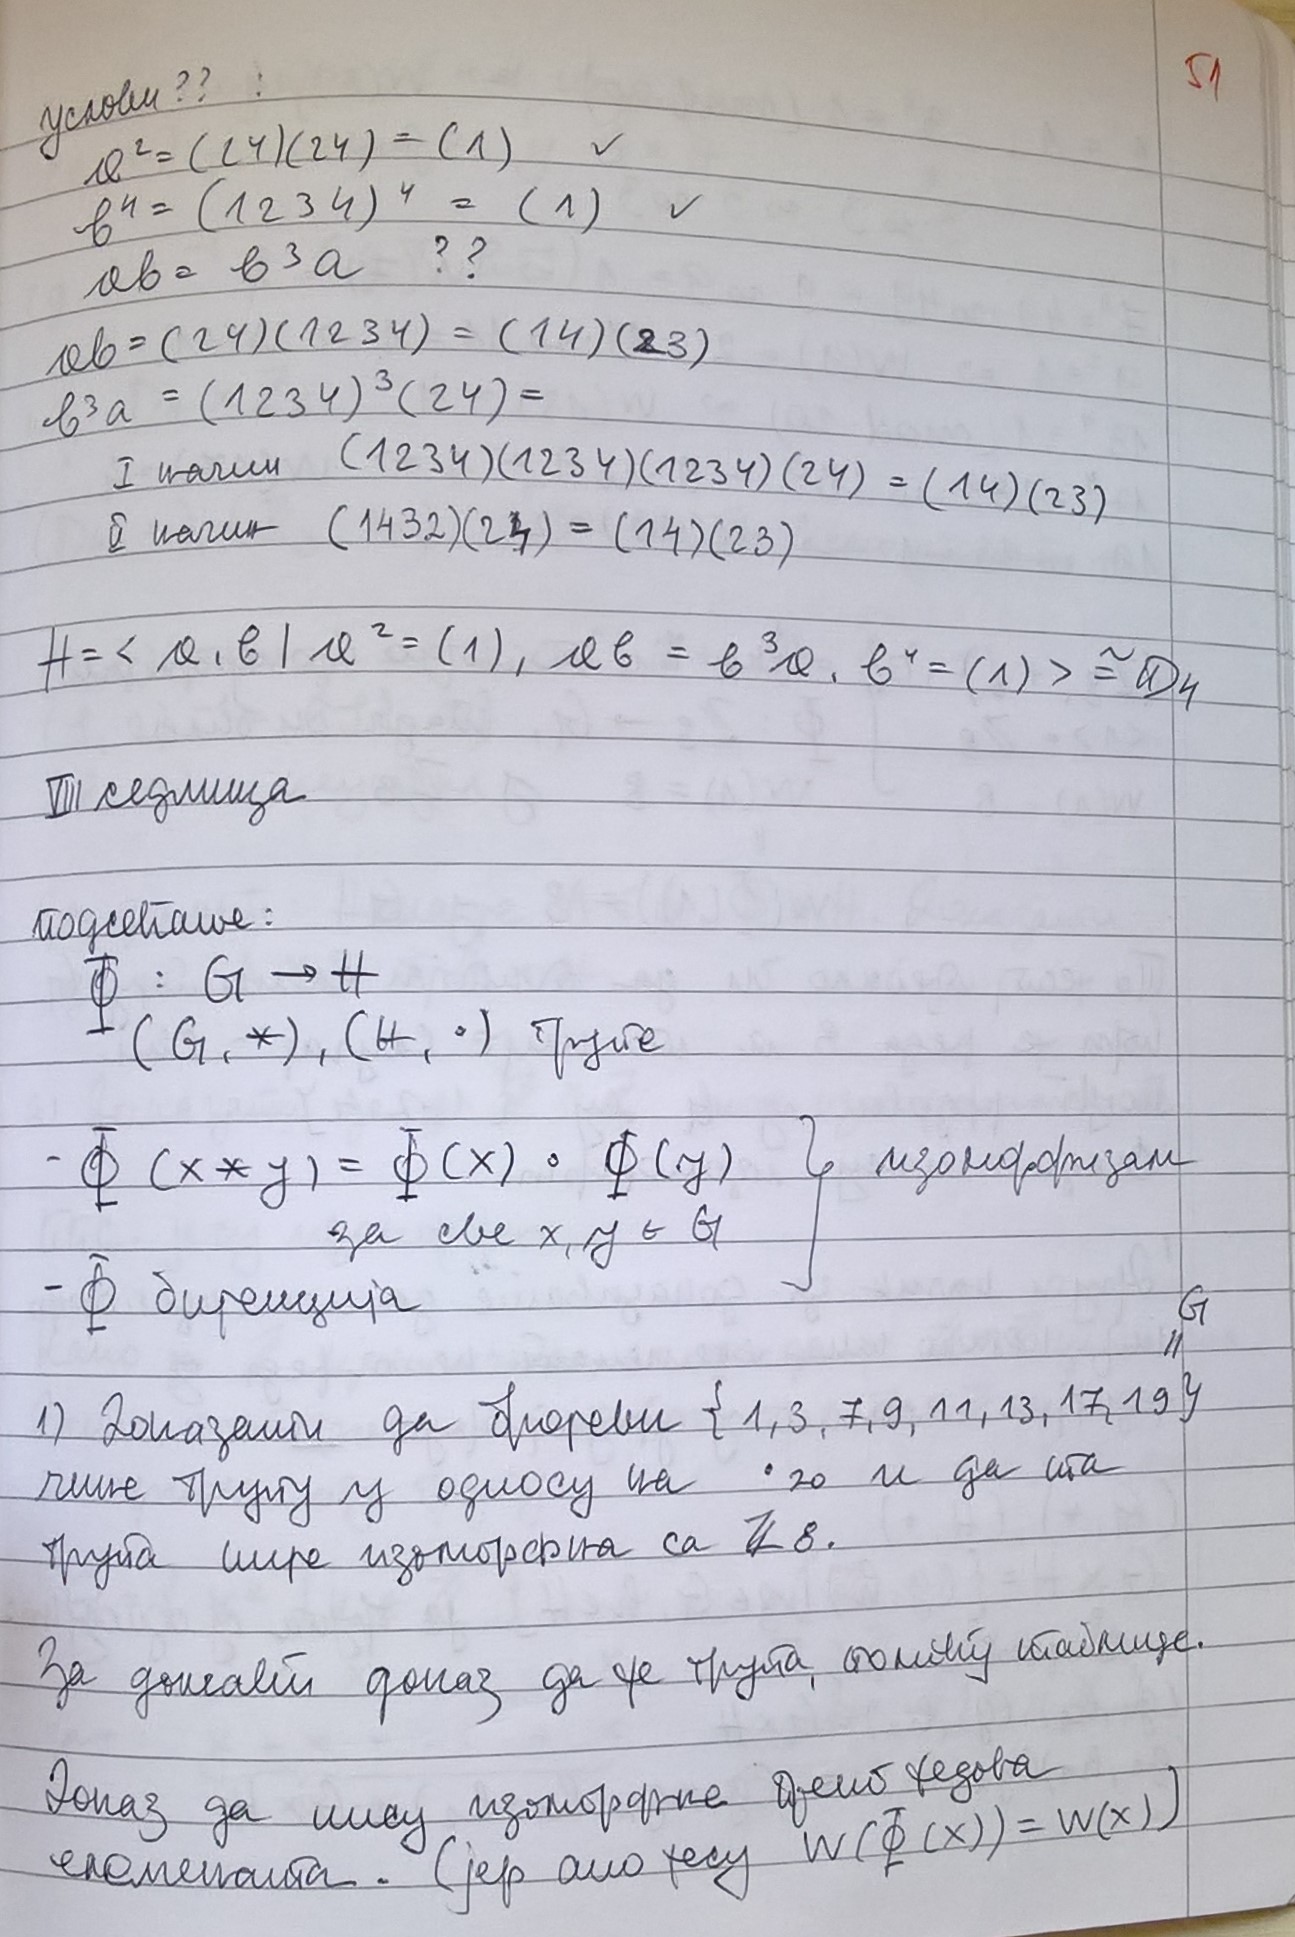 51
услови?? :
a² = (24)(24) = (1) ✓
b⁴ = (1234)⁴ = (1) ✓
ab = b³a ??
ab = (24)(1234) = (14)(23)
b³a = (1234)³(24) =
I начин (1234)(1234)(1234)(24) = (14)(23)
II начин (1432)(24) = (14)(23)
H = < a, b | a² = (1), ab = b³a, b⁴ = (1) > ≅ D₄
VIII седмица
подсећање:
Φ : G → H
(G, *), (H, ·) групе
- Φ (x * y) = Φ(x) · Φ(y) } изоморфизам
за све x, y ∈ G
- Φ бијекција
G
=
1) Доказати да бројеви {1, 3, 7, 9, 11, 13, 17, 19}
чине групу у односу на ·₂₀ и да та
група није изоморфна са ℤ₈.
За домаћи доказ да је група, помоћу таблице.
Доказ да нису изоморфне преко редова
елемената. (јер ако јесу W(Φ(x)) = W(x))